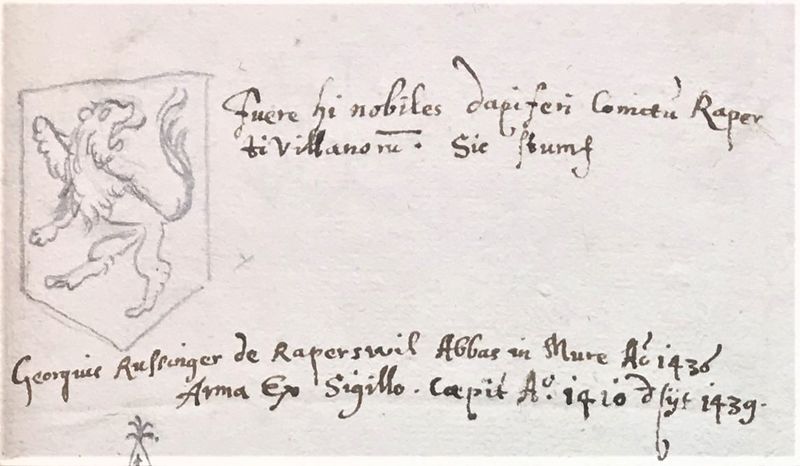 Fuere hi nobiles dapiferi Comitū Raper
ti villanorū. Sic Stumf
Georgius Russinger de Raperswil Abbas in Mure Aº 1436
Arma Ex Sigillo. Cœpit Aº. 1410 dsijt 1439.